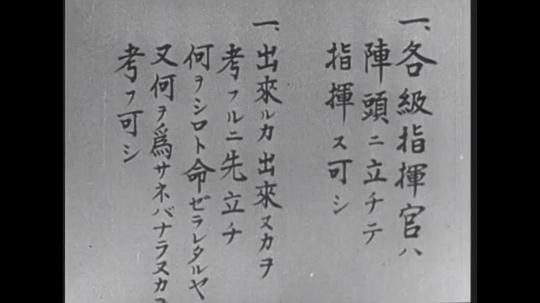 一、各級指揮官ハ
陣頭ニ立チテ
指揮ス可シ
一、出來ルカ出來スカヲ
考フルニ先立チ
何ヲシロト命ゼラレタルヤ
又何ヲ爲サネバナラヌカヲ
考フ可シ